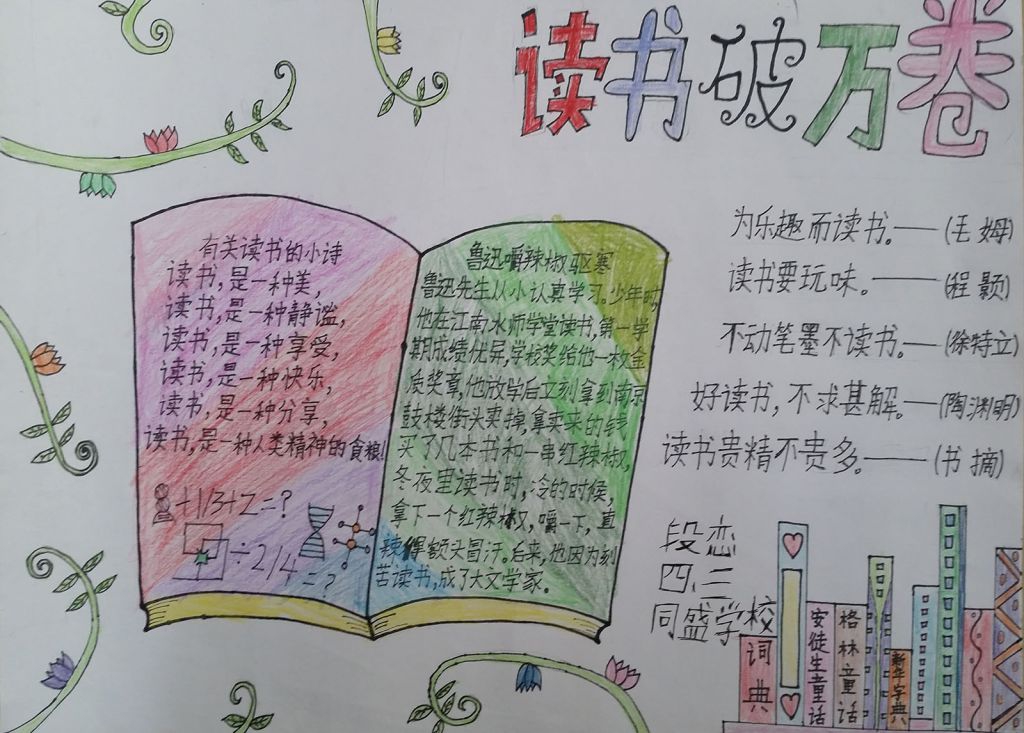 读书破万卷
有关读书的小诗
读书,是一种美,
读书,是一种静谧,
读书,是一种享受,
读书,是一种快乐,
读书,是一种分享,
读书,是一种人类精神的食粮!
+1/3+2=?
÷2/4=?
鲁迅嚼辣椒驱寒
鲁迅先生从小认真学习。少年时,
他在江南水师学堂读书,第一学
期成绩优异,学校奖给他一枚金
质奖章,他放学后立刻拿到南京
鼓楼街头卖掉,拿卖来的钱
买了几本书和一串红辣椒,
冬夜里读书时,冷的时候,
拿下一个红辣椒,嚼一下,直
辣得额头冒汗。后来,他因为刻
苦读书,成了大文学家。
为乐趣而读书。——(毛姆)
读书要玩味。——(程颢)
不动笔墨不读书。—(徐特立)
好读书,不求甚解。—(陶渊明)
读书贵精不贵多。——(书摘)
段恋
四、三
同盛学校
词典
安徒生童话
格林童话
新华字典